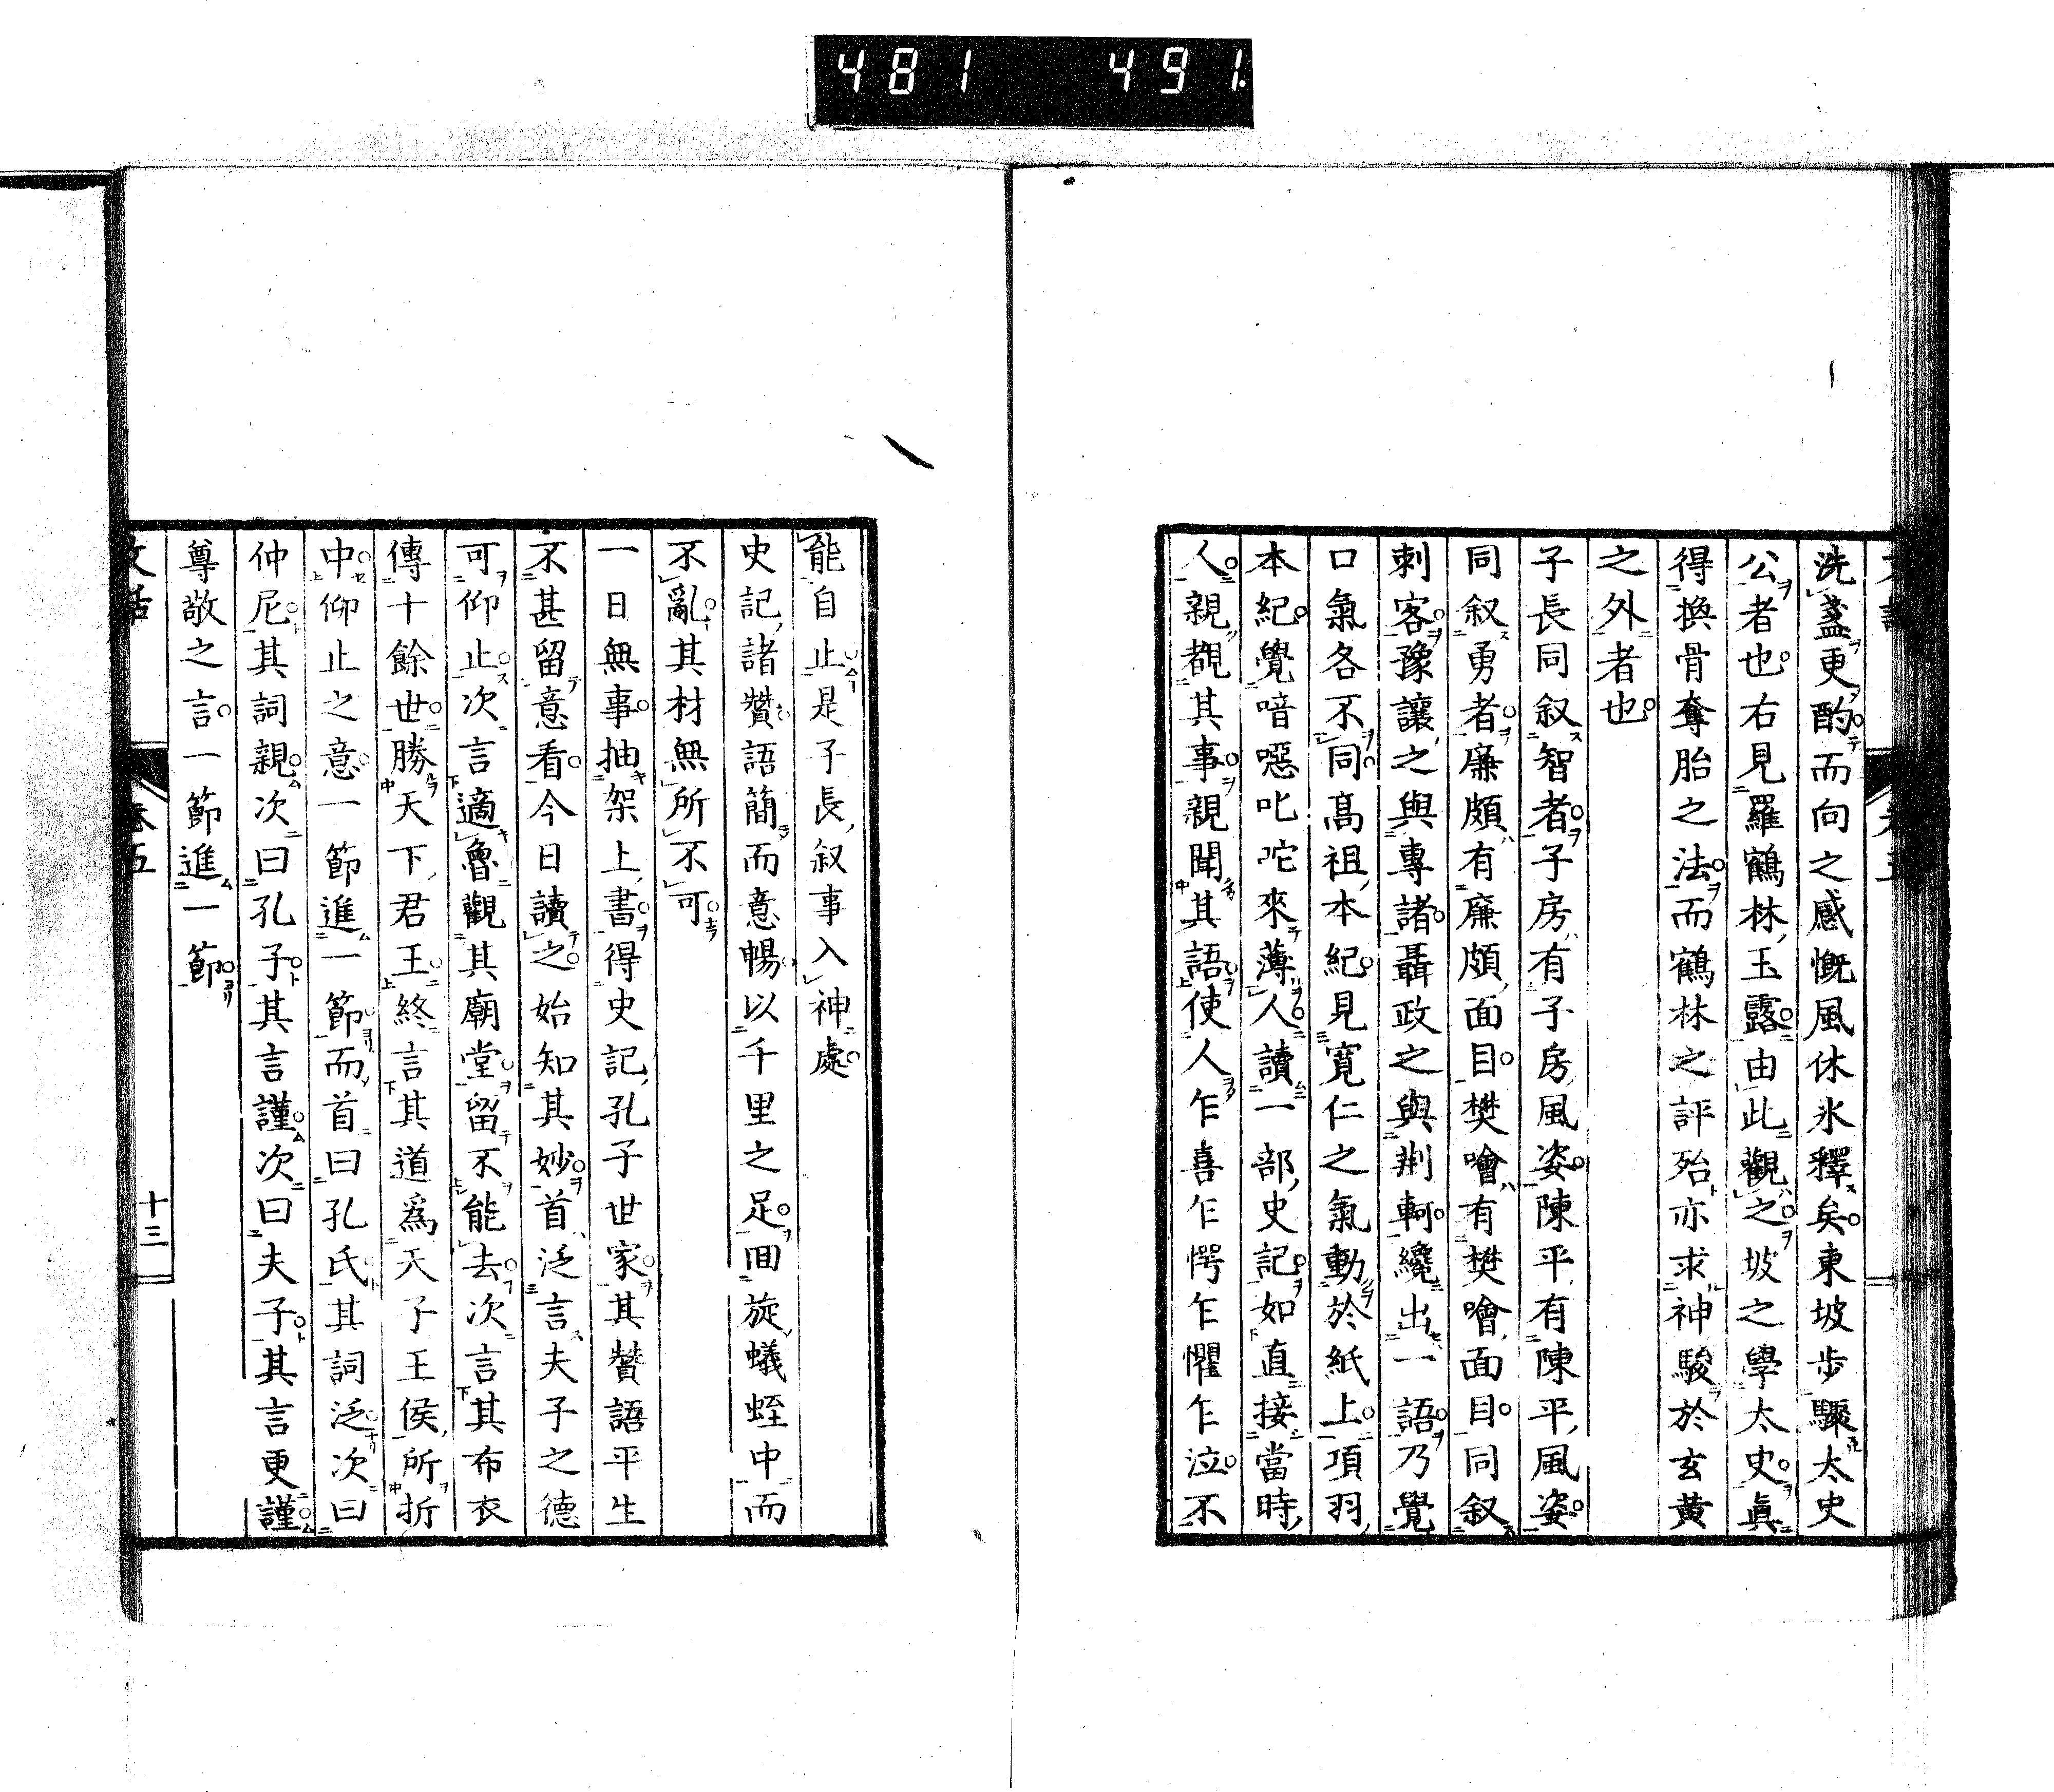 481 491.
洗盞更酌而向之感慨風休氷釋矣東坡步驟太史
公者也右見羅鶴林玉露由此觀之坡之學太史眞
得換骨奪胎之法而鶴林之評殆亦求神駿於玄黃
之外者也
子長同叙智者子房有子房風姿陳平有陳平風姿
同叙勇者廉頗有廉頗面目樊噲有樊噲面目同叙
刺客豫讓之與專諸聶政之與荆軻纔出一語乃覺
口氣各不同高祖本紀見寬仁之氣動於紙上項羽
本紀覺喑噁叱咜來薄人讀一部史記如直接當時
人親覩其事親聞其語使人乍喜乍愕乍懼乍泣不
能自止是子長叙事入神處
史記諸贊語簡而意暢以千里之足囬旋蟻蛭中而
不亂其材無所不可
一日無事抽架上書得史記孔子世家其贊語平生
不甚留意看今日讀之始知其妙首泛言夫子之德
可仰止次言適魯觀其廟堂留不能去次言其布衣
傳十餘世勝天下君王終言其道爲天子王侯所折
中仰止之意一節進一節而首曰孔氏其詞泛次曰
仲尼其詞親次曰孔子其言謹次曰夫子其言更謹
尊敬之言一節進一節
文話 卷五 十三